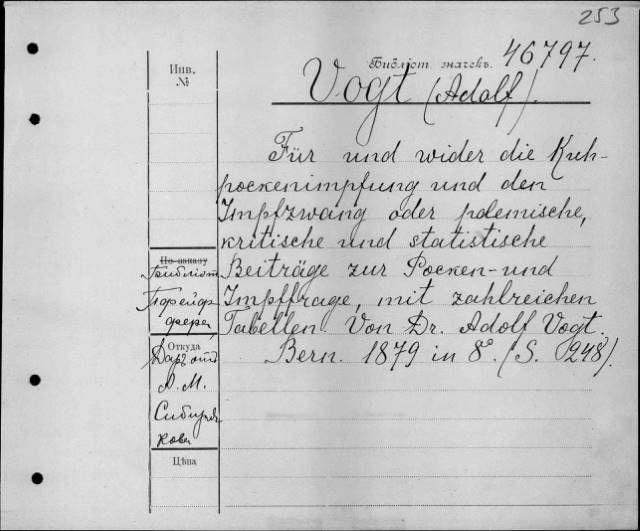 253
Библіот. значекъ. 46797.
Инв. №
Vogt (Adolf).
Für und wider die Kuh-
pockenimpfung und den
Impfzwang oder polemische,
kritische und statistische
Beiträge zur Pocken- und
Impffrage, mit zahlreichen
Tabellen. Von Dr. Adolf Vogt.
Bern. 1879 in 8º. (S. 248).
По заказу
Библіот.
Откуда
Даръ отъ
А. М.
Сибиря-
кова
Цѣна